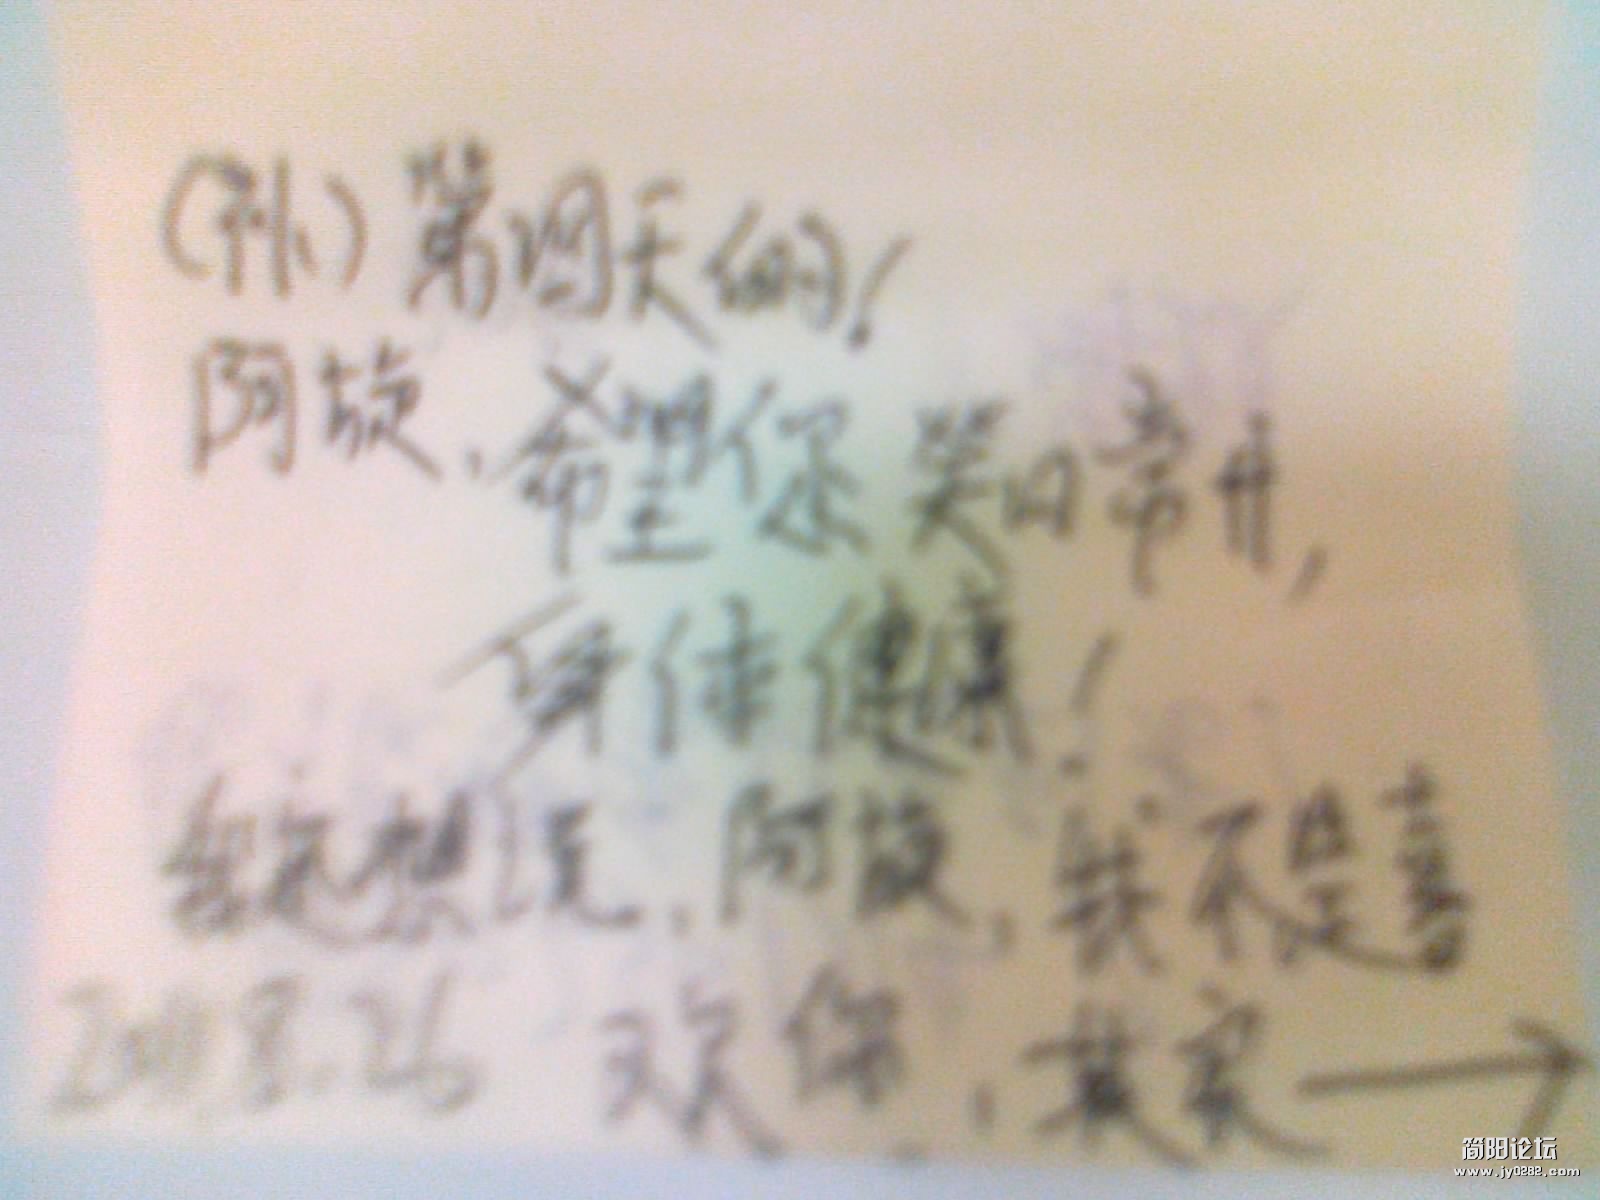 (补)第四天的!
阿旋,希望你笑口常开,
身体健康!
想说,阿旋,我不是喜
2011.8.26 欢你,其实→
简阳论坛
www.jy0282.com